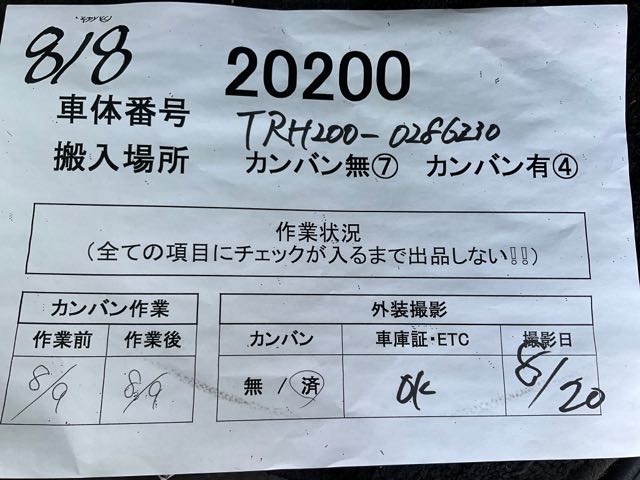 8/8
20200
車体番号 TRH200-0286230
搬入場所 カンバン無⑦ カンバン有④
作業状況
(全ての項目にチェックが入るまで出品しない!!)
カンバン作業 外装撮影
作業前 作業後 カンバン 車庫証・ETC 撮影日
8/9 8/9 無 / 済 OK 8/20